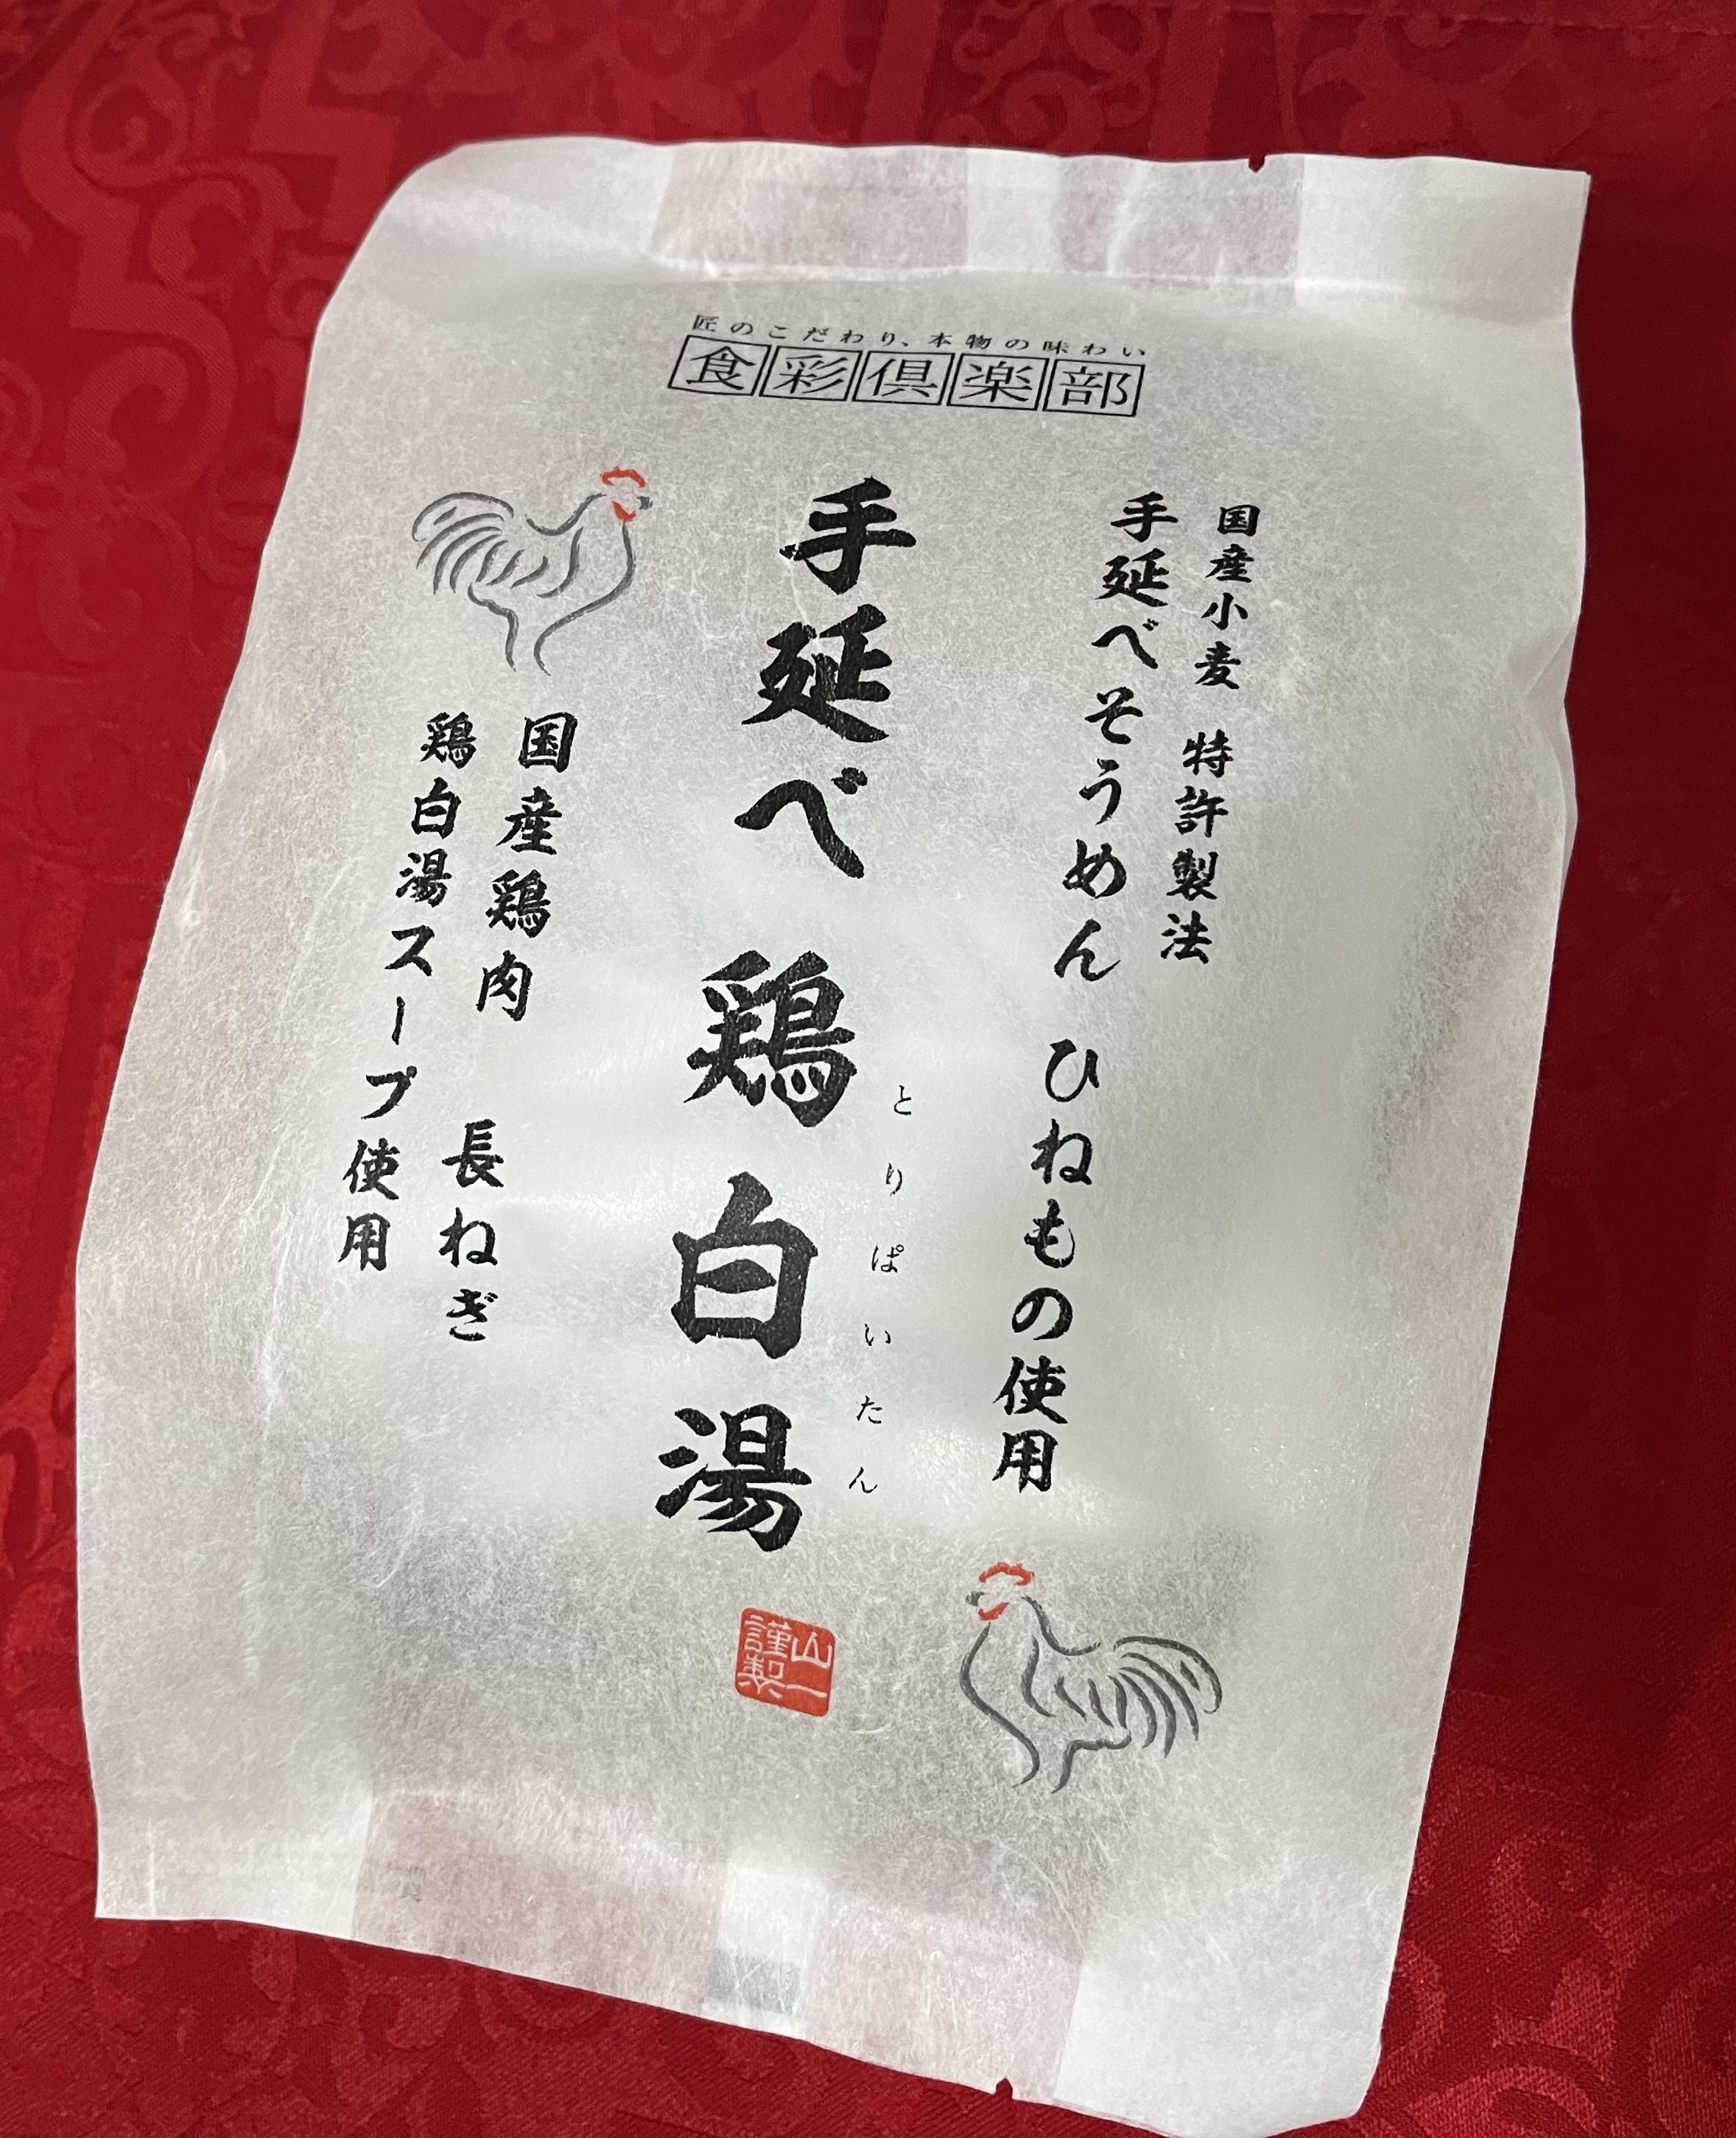 匠のこだわり、本物の味わい
食彩倶楽部
国産小麦 特許製法
手延べそうめん ひねもの使用
手延べ 鶏白湯
とりぱいたん
国産鶏肉 長ねぎ
鶏白湯スープ使用
山一
謹製